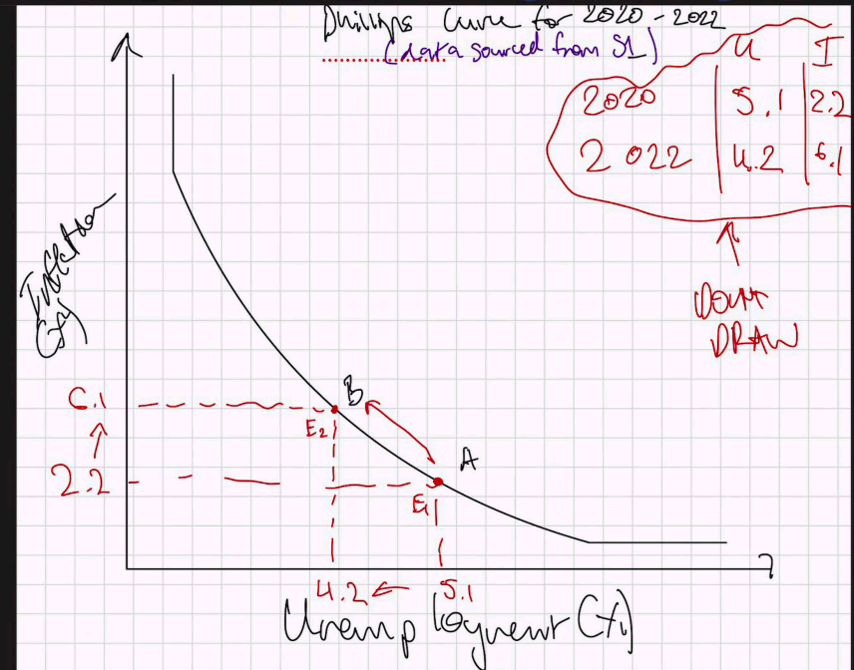 Phillips Curve for 2020-2022
(data sourced from S1)
U I
2020 5.1 2.2
2022 4.2 6.1
DONT
DRAW
Inflation
(%)
B
6.1
E2
A
2.2
E1
4.2 ← 5.1
Unemployment (%)